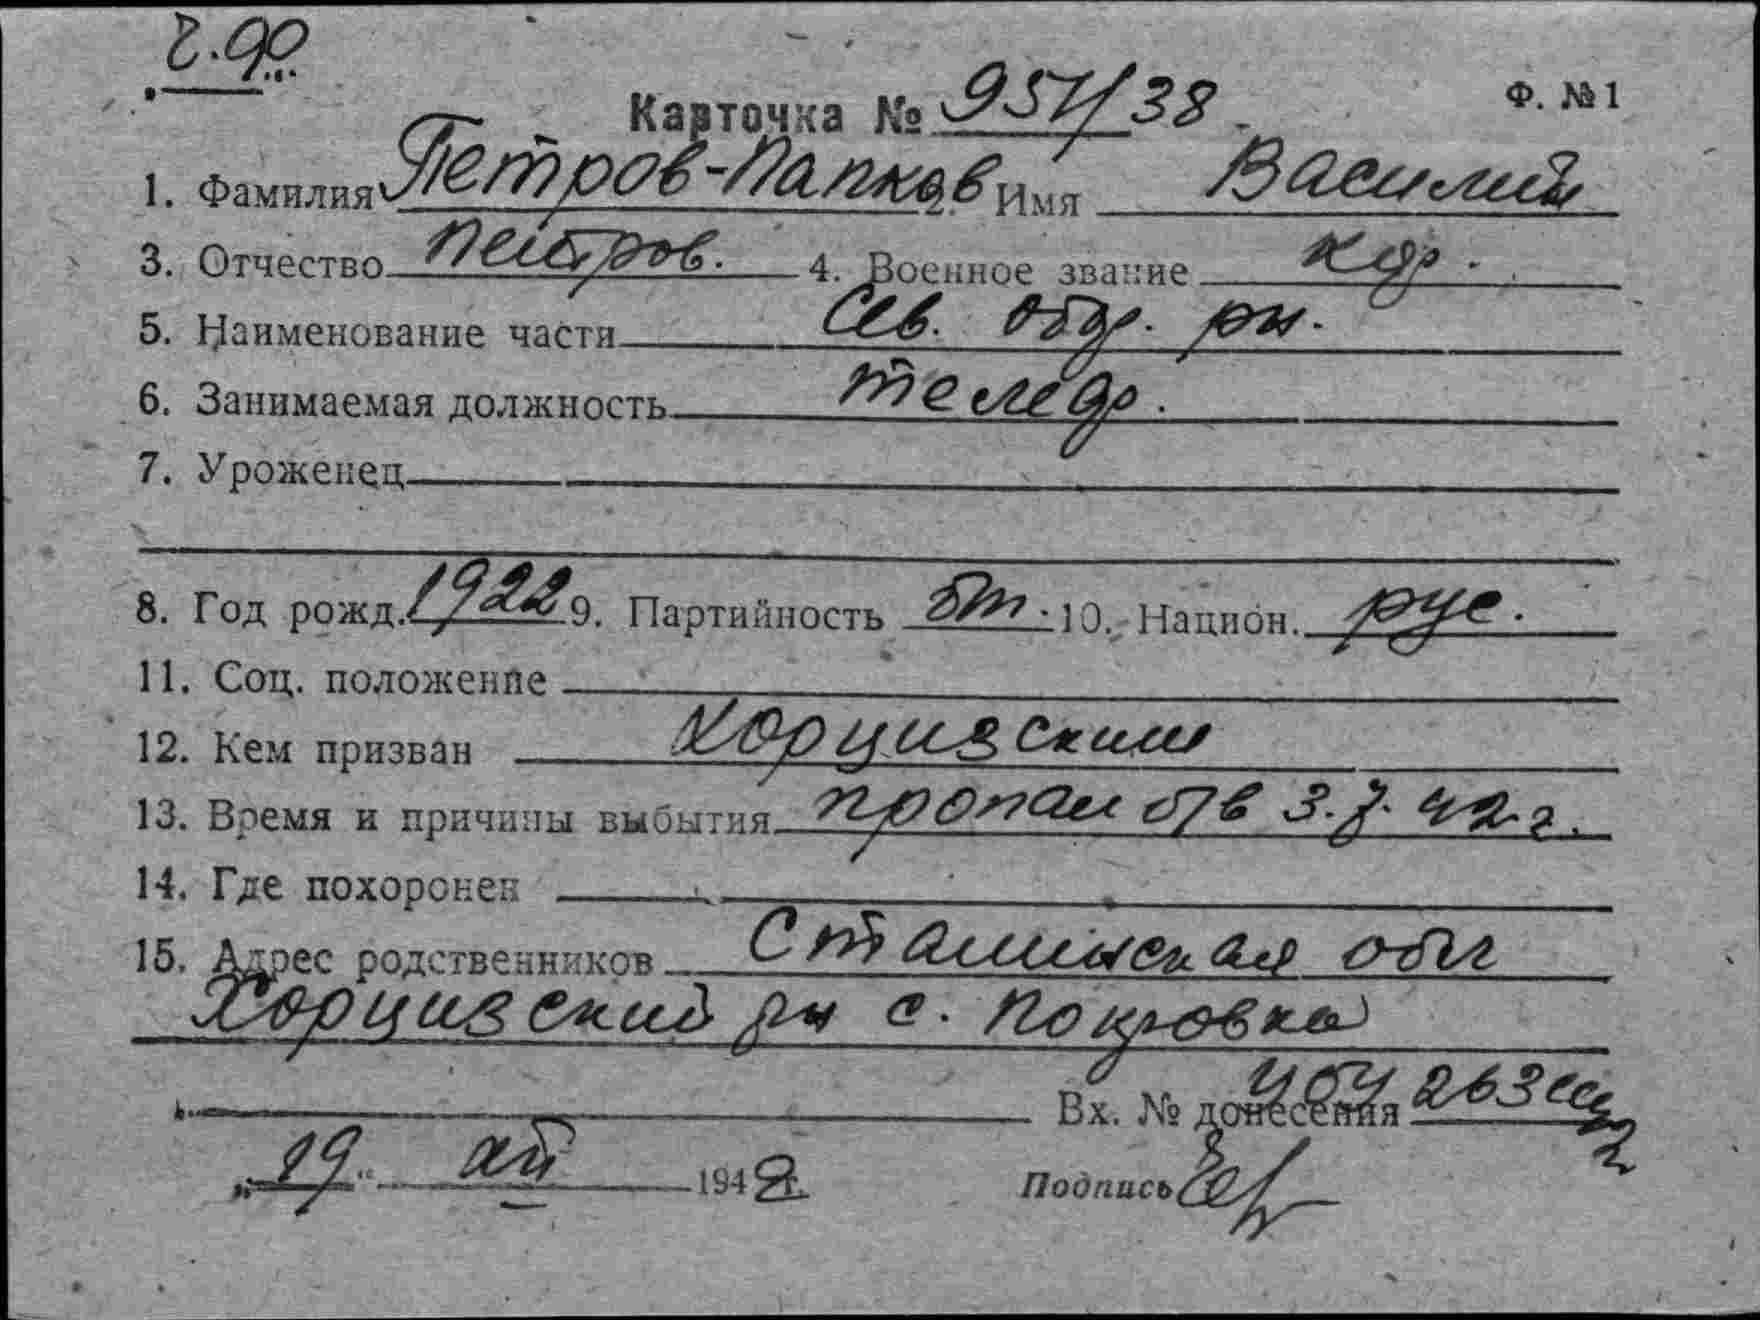 Карточка № 951/38
Ф. № 1
1. Фамилия Петров-Папков 2. Имя Василий
3. Отчество Петров. 4. Военное звание кдр.
5. Наименование части Сев. обор. рн.
6. Занимаемая должность
7. Уроженец
8. Год рожд. 1922 9. Партийность бп. 10. Национ. рус.
11. Соц. положение
12. Кем призван Хорцизским
13. Время и причины выбытия пропал б/в 3.7.42.г.
14. Где похоронен
15. Адрес родственников Сталинская обл
Хорцизский рн с. Покровка
Вх. № донесения 263
„19“ ап 194
Подпись